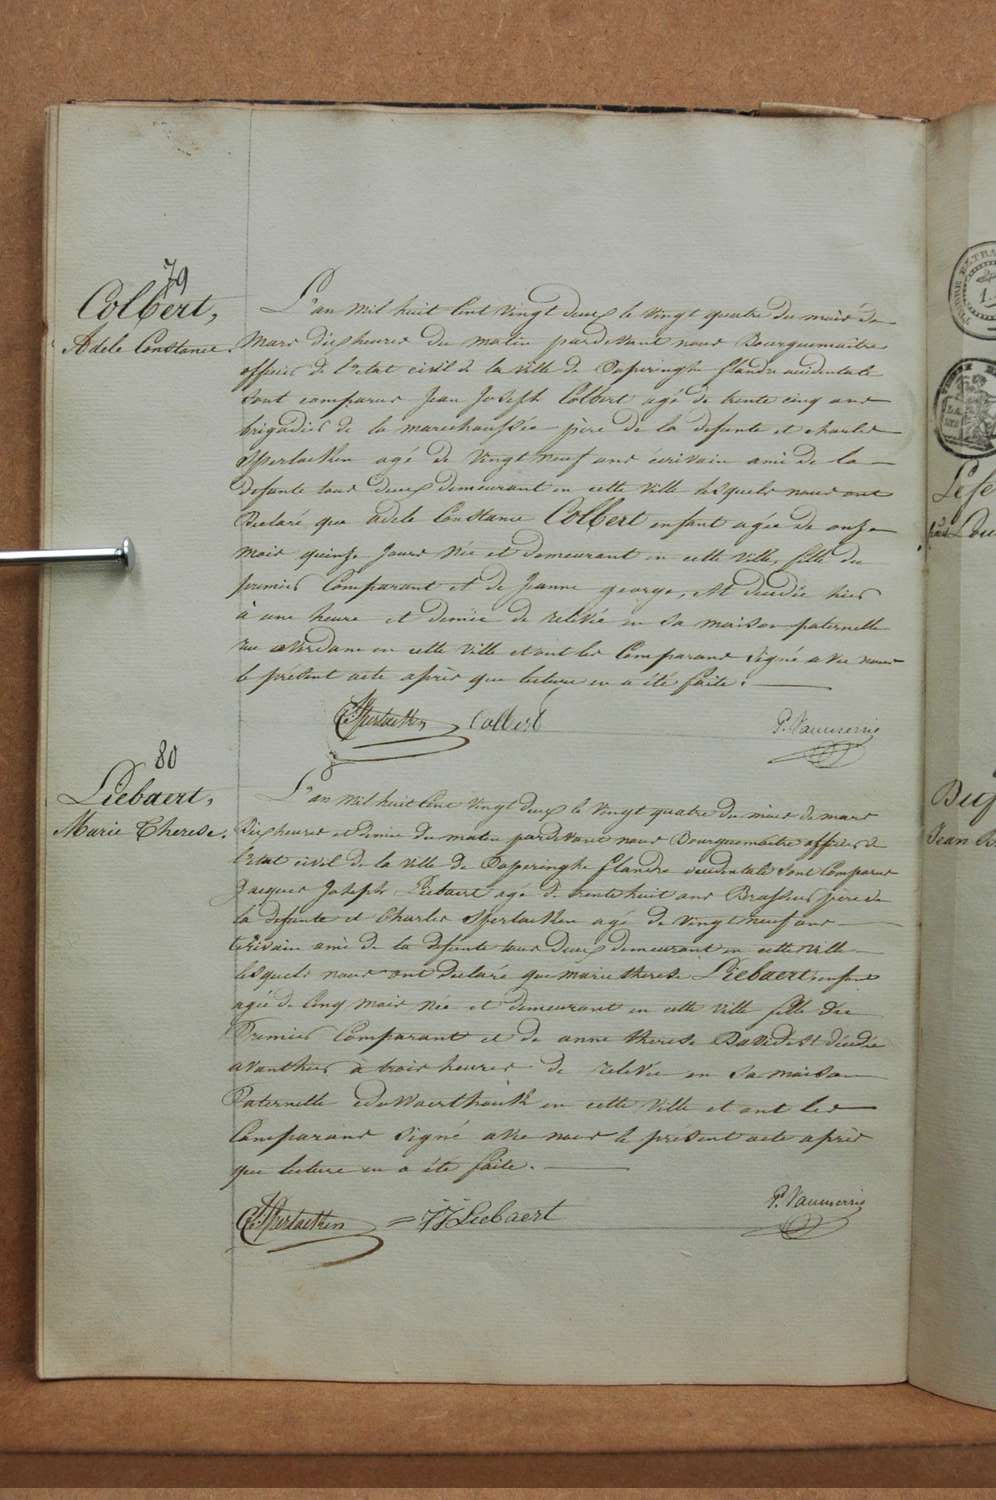 79
Colbert,
Adele Constance.
L'an mil huit cent vingt deux le vingt quatre du mois de
Mars dix heures du matin pardevant nous Bourguemaitre
officier de l'etat civil de la ville de Poperinghe flandre occidentale
sont comparus Jean Joseph Colbert agé de trente cinq ans
brigadier de la marechaussée père de la defunte et charles
Sperlaeken agé de vingt neuf ans écrivain ami de la
defunte tous deux demeurant en cette ville lesquels nous ont
Declaré que adele Constance Colbert enfant agée de onze
mois quinze jours née et demeurant en cette ville, fille du
premier Comparant et de Jeanne george, est decedée hier
à une heure et demie de relévée en sa maison paternelle
rue en cette ville et ont les Comparans signé avec nous
le présent acte après que lecture en a été faite.
Sperlaeken Colbert P. Vanmerris
80
Liebaert,
Marie Therese.
L'an mil huit cent vingt deux le vingt quatre du mois de mars
Dix heures et demie du matin pardevant nous Bourguemaitre officier de
l'etat civil de la ville de Poperinghe flandre occidentale sont Comparus
Jacques Joseph Liebaert agé de trente huit ans Brasseur père de
la defunte et Charles Sperlaeken agé de vingt neuf ans
Ecrivain ami de la defunte tous deux demeurant en cette ville
lesquels nous ont declaré que marie therese Liebaert, enfant
agée de cinq mois née et demeurant en cette ville fille du
Premier Comparant et de anne therese David est décédée
avanthier à trois heures de relevée en sa maison
Paternelle en cette ville et ont les
Comparans signé avec nous le présent acte après
que lecture en a été faite.
Sperlaeken = JJ Liebaert P. Vanmerris
Lefe
Jean B